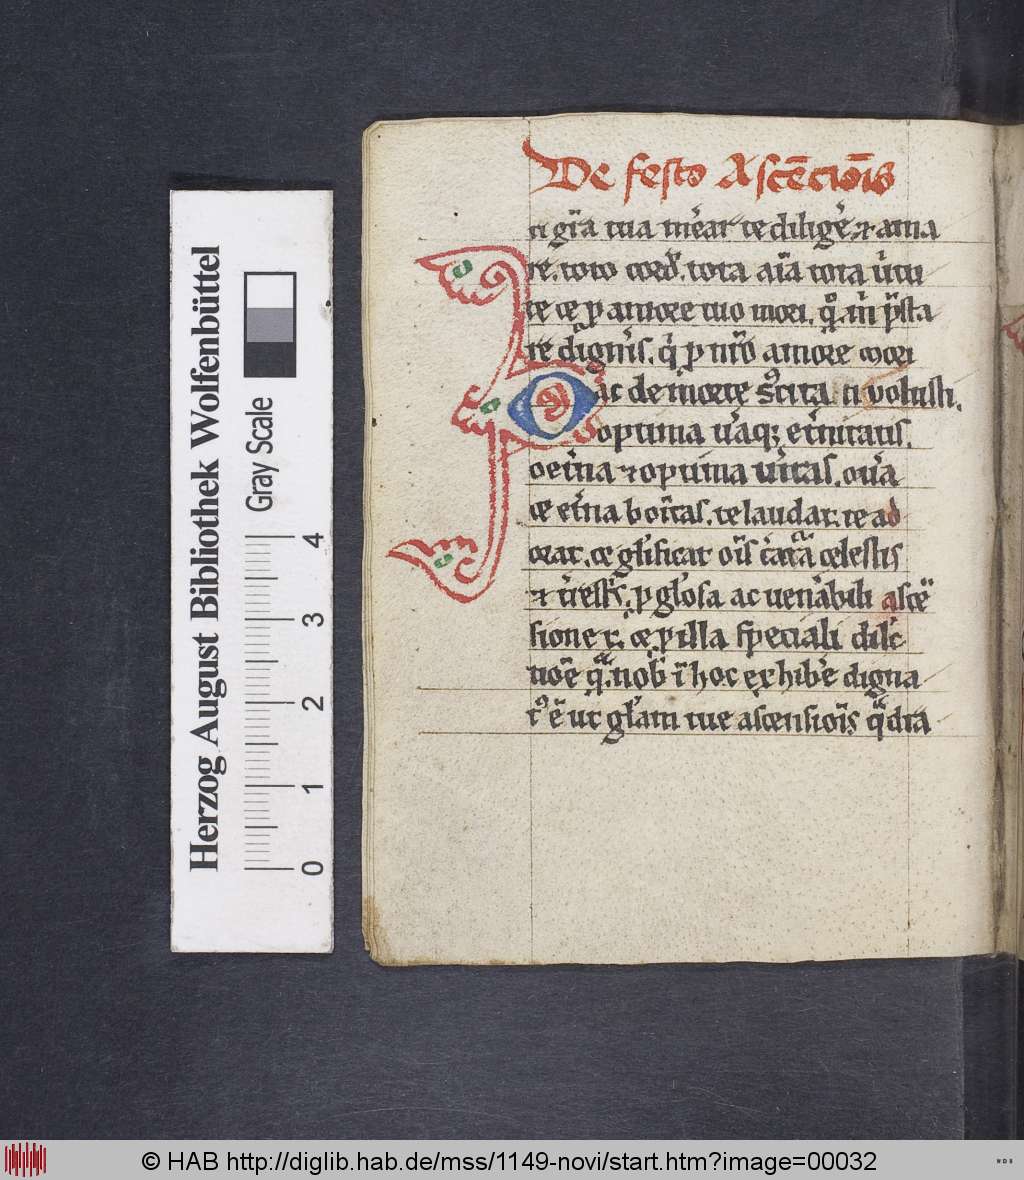 De festo Ascēciōis
ti gr̃a tua m̃ear te diligẽ ⁊ ama
re. toto corde. tota aĩa tota ũtu
te ⁊ p amore tuo mori. q̊. m̃ p̃sta
re dig̃. q̃ p nr̃o amore mori
ac de
O optima ũaq; et̃nitatis.
o et̃na ⁊ optima ũitas. o ũa
⁊ et̃na boñtas. te laudat. te ad
orat. te gl̃ificat om̃s c̃atã celestis
⁊ t̃rest̃s. p gl̃osa ac uen̄abili ascẽ
sione t. ⁊ p illa speciali dil̃c
tiõe q̃. nob̃ ĩ hoc exhib̃e digna
t⁹ ẽ ut gl̃am tue ascensiõis q̃dia
Herzog August Bibliothek Wolfenbüttel
Gray Scale
0 1 2 3 4
© HAB http://diglib.hab.de/mss/1149-novi/start.htm?image=00032